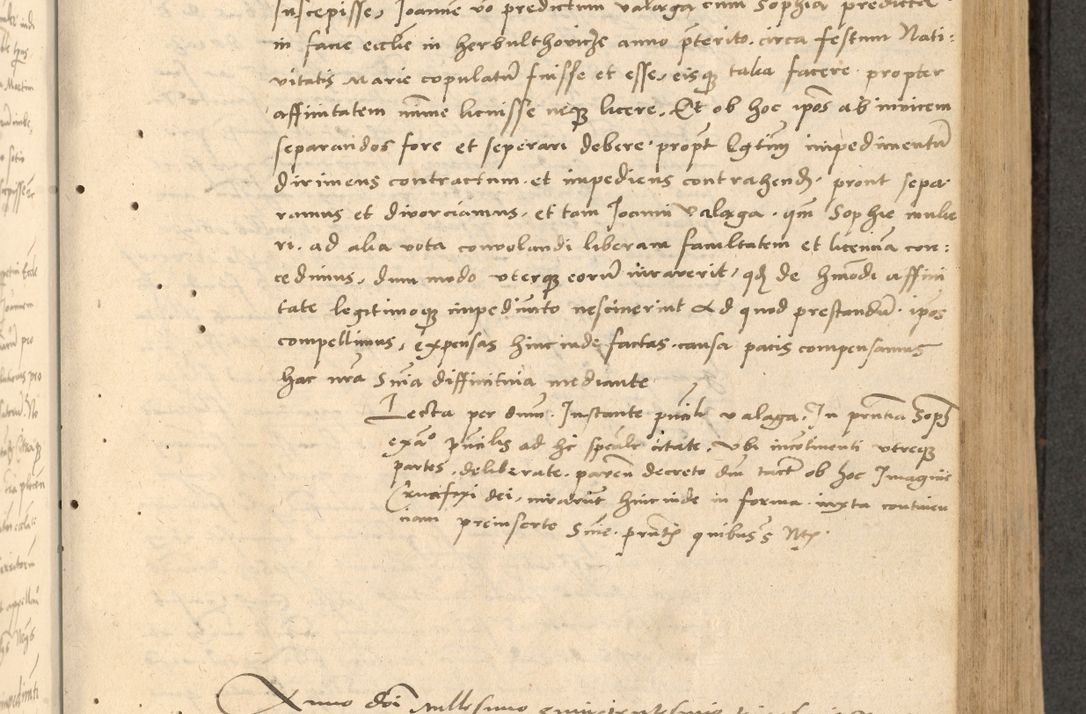 Inscepisse, Joanne vo predictum Valaga cum Sophia predicta
in facie ecclie in herbulthovicze anno pterito circa festum Nati:
vitatis Marie copulatu fuisse et esse, eisq talia facere propter
affinitatem mime licuisse neq licere. Et ob hoc ipos ab invicem
separandos fore et seperari debere propt lgtim impedimentu
dirimens contractum et impediens contrahend. prout sepa
ramus et divorciamus, et tam Joanni Valaga qm Sophie mulie
ri ad alia vota convolandi liberam facultatem et licencia con:
cedimus, dum modo uterq eoru iuraverit, qd de hmodi affini
tate legitimoq impedimto nesciuerint Ad quod prestandu ipos
compellimus, expensas hinc inde factas causa pacis compensamus
hac nra Snia diffinitiva mediante
Lecta per dnum Instante pncili Valaga, In pntia Soph
exao pncilis ad hc spcalr citate, Ubi incotinenti utreq
partes deliberate paren decreto dni tact ob hoc Imagnis
Crucifixi dei, iurarut hinc inde in forma iuxta continen
ciam preinserte Snie pntib quibus s Ntr
Anno doi Millesimo